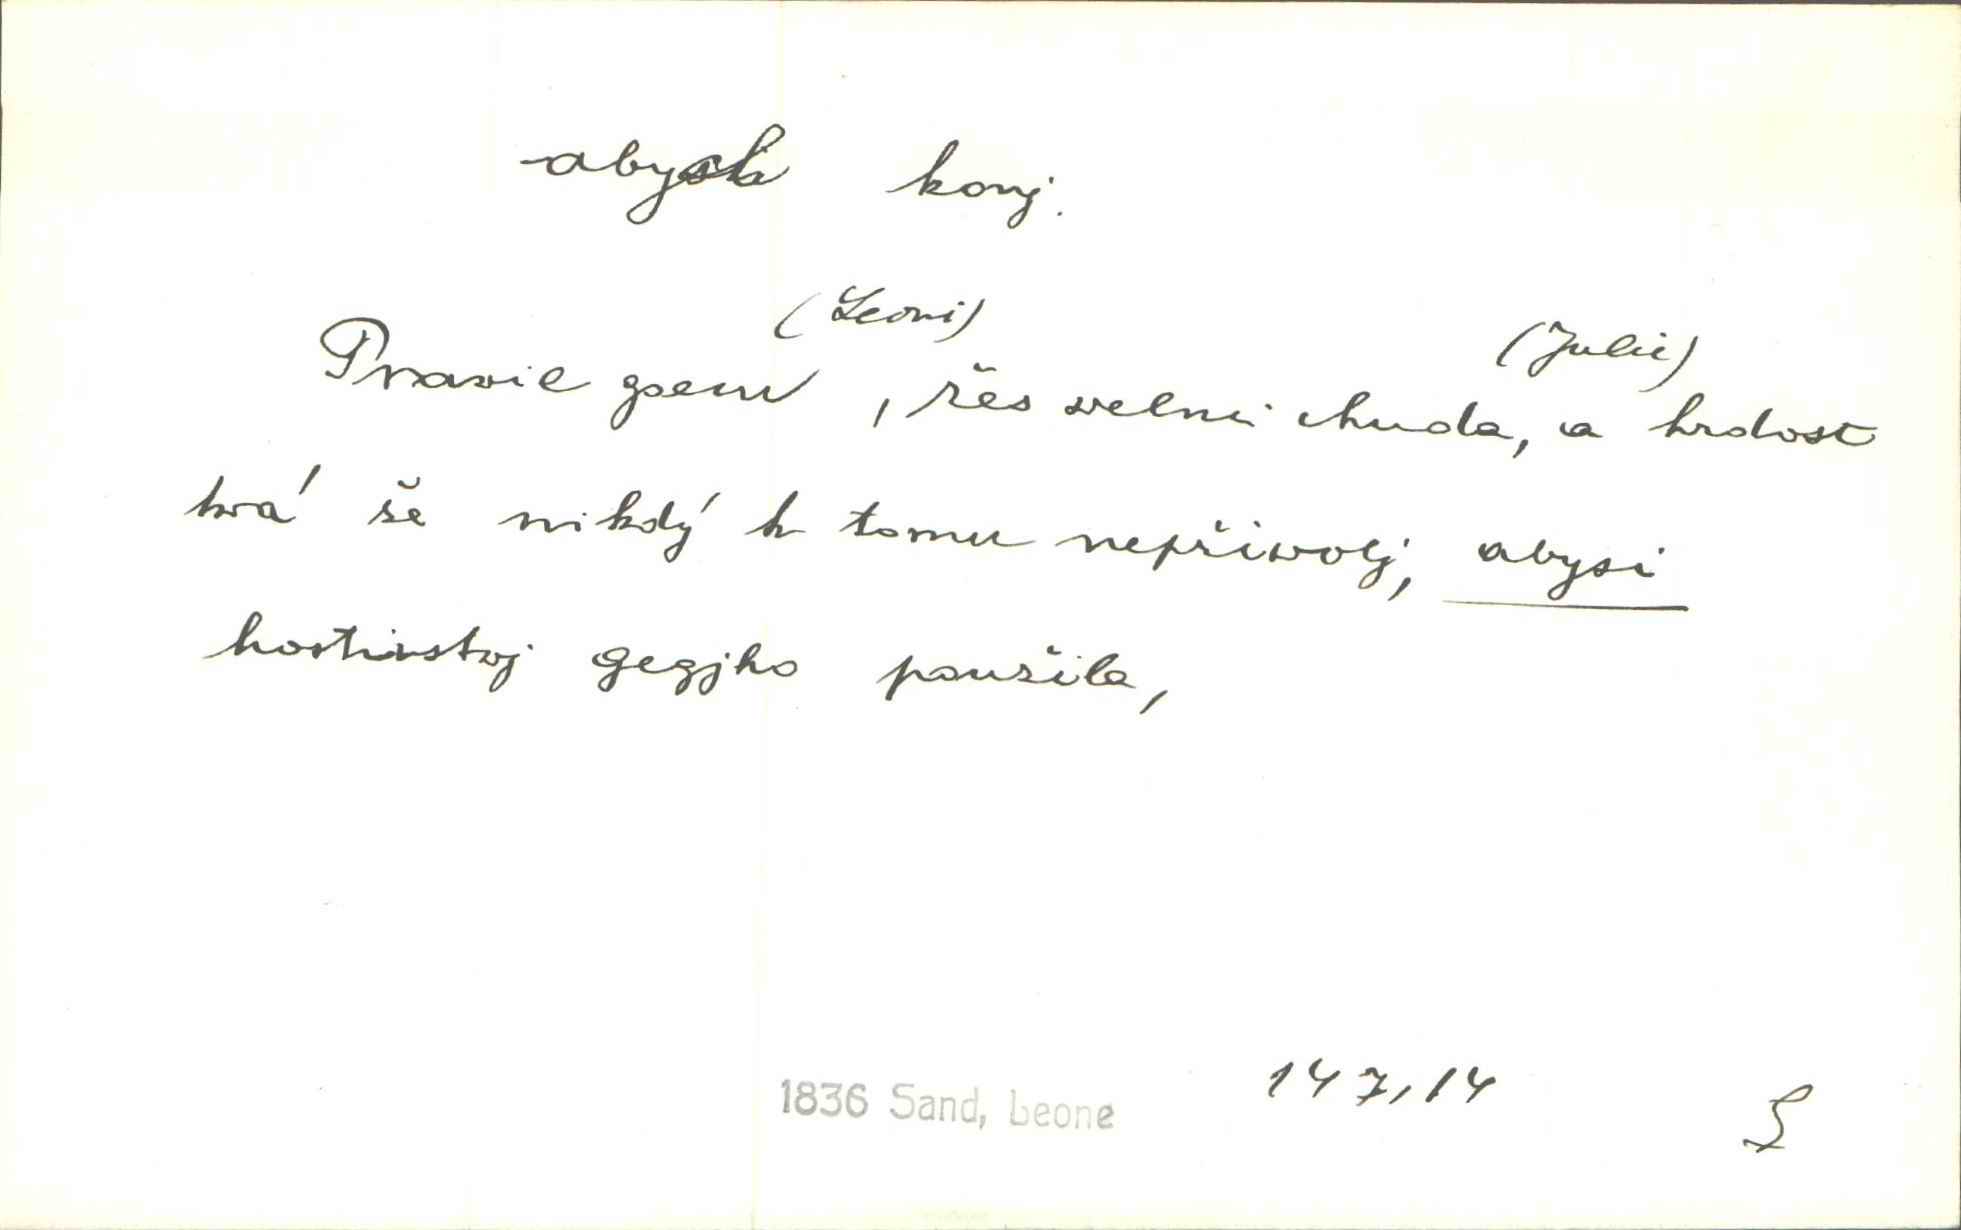 abych konj.
(Leoni) (Julii)
Pravil gsem, žes welmi chuda, a hrdost
twá še nikdý k tomu nepřiwolj, abysi
hostinstwj gegjho použila,
1836 Sand, Leone 147,14